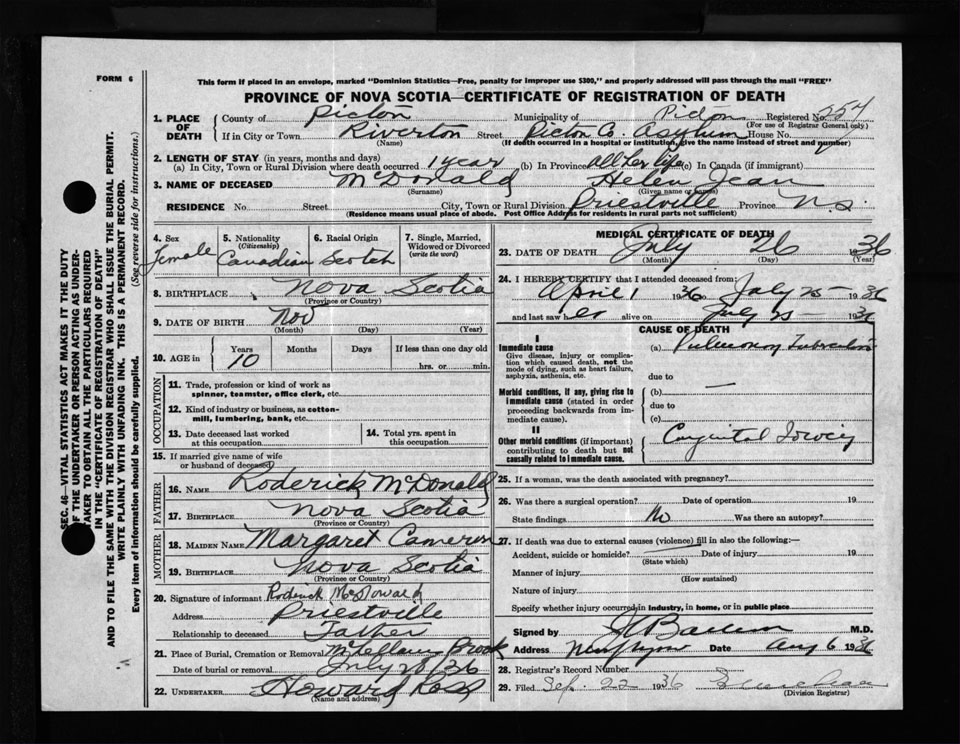 FORM 6
This form if placed in an envelope, marked "Dominion Statistics—Free, penalty for improper use $300," and properly addressed will pass through the mail "FREE"
PROVINCE OF NOVA SCOTIA—CERTIFICATE OF REGISTRATION OF DEATH
1. PLACE OF DEATH County of Pictou Municipality of Pictou Registered No. 254
(For use of Registrar General only.)
If in City or Town Riverton Street Pictou Co. Asylum House No.
(Name) (If death occurred in a hospital or institution, give the name instead of street and number)
2. LENGTH OF STAY (in years, months and days)
(a) In City, Town or Rural Division where death occurred 1 year (b) In Province all her life (c) In Canada (if immigrant)
3. NAME OF DECEASED McDonald Helen Jean
(Surname) (Given name or names)
RESIDENCE No. Street City, Town or Rural Division Priestville Province N.S.
(Residence means usual place of abode. Post Office Address for residents in rural parts not sufficient)
4. Sex female
5. Nationality (Citizenship) Canadian
6. Racial Origin Scotch
7. Single, Married, Widowed or Divorced (write the word)
8. BIRTHPLACE Nova Scotia
(Province or Country)
9. DATE OF BIRTH Nov
(Month) (Day) (Year)
10. AGE in Years Months Days If less than one day old
10 hrs. or min.
OCCUPATION
11. Trade, profession or kind of work as spinner, teamster, office clerk, etc.
12. Kind of industry or business, as cotton-mill, lumbering, bank, etc.
13. Date deceased last worked at this occupation
14. Total yrs. spent in this occupation
15. If married give name of wife or husband of deceased
FATHER
16. NAME Roderick McDonald
17. BIRTHPLACE Nova Scotia
(Province or Country)
MOTHER
18. MAIDEN NAME Margaret Cameron
19. BIRTHPLACE Nova Scotia
(Province or Country)
20. Signature of informant Roderick McDonald
Address Priestville
Relationship to deceased Father
21. Place of Burial, Cremation or Removal Brook
Date of burial or removal July 28 '36
22. UNDERTAKER Howard Ross
(Name and address)
MEDICAL CERTIFICATE OF DEATH
23. DATE OF DEATH July 26 36
(Month) (Day) (Year)
24. I HEREBY CERTIFY that I attended deceased from:
April 1 1936 to July 25 1936
and last saw her alive on July 25 1936
CAUSE OF DEATH
I
Immediate cause (a) Pulmonary
Give disease, injury or complication which caused death, not the mode of dying, such as heart failure, asphyxia, asthenia, etc.
due to
Morbid conditions, if any, giving rise to immediate cause (stated in order proceeding backwards from immediate cause). (b)
due to
(c)
II
Other morbid conditions (if important) contributing to death but not causally related to immediate cause.
25. If a woman, was the death associated with pregnancy?
26. Was there a surgical operation? Date of operation 19
State findings No Was there an autopsy?
27. If death was due to external causes (violence) fill in also the following:—
Accident, suicide or homicide? Date of injury 19
(State which)
Manner of injury
(How sustained)
Nature of injury
Specify whether injury occurred in industry, in home, or in public place
Signed by M.D.
Address Date Aug 6 1936
28. Registrar's Record Number
29. Filed Sep. 22 1936
(Division Registrar)
SEC. 46—VITAL STATISTICS ACT MAKES IT THE DUTY
OF THE UNDERTAKER OR PERSON ACTING AS UNDER-
TAKER TO OBTAIN ALL THE PARTICULARS REQUIRED
IN THE "CERTIFICATE OF REGISTRATION OF DEATH"
AND TO FILE THE SAME WITH THE DIVISION REGISTRAR WHO SHALL ISSUE THE BURIAL PERMIT.
WRITE PLAINLY WITH UNFADING INK. THIS IS A PERMANENT RECORD.
Every item of information should be carefully supplied. (See reverse side for instructions.)